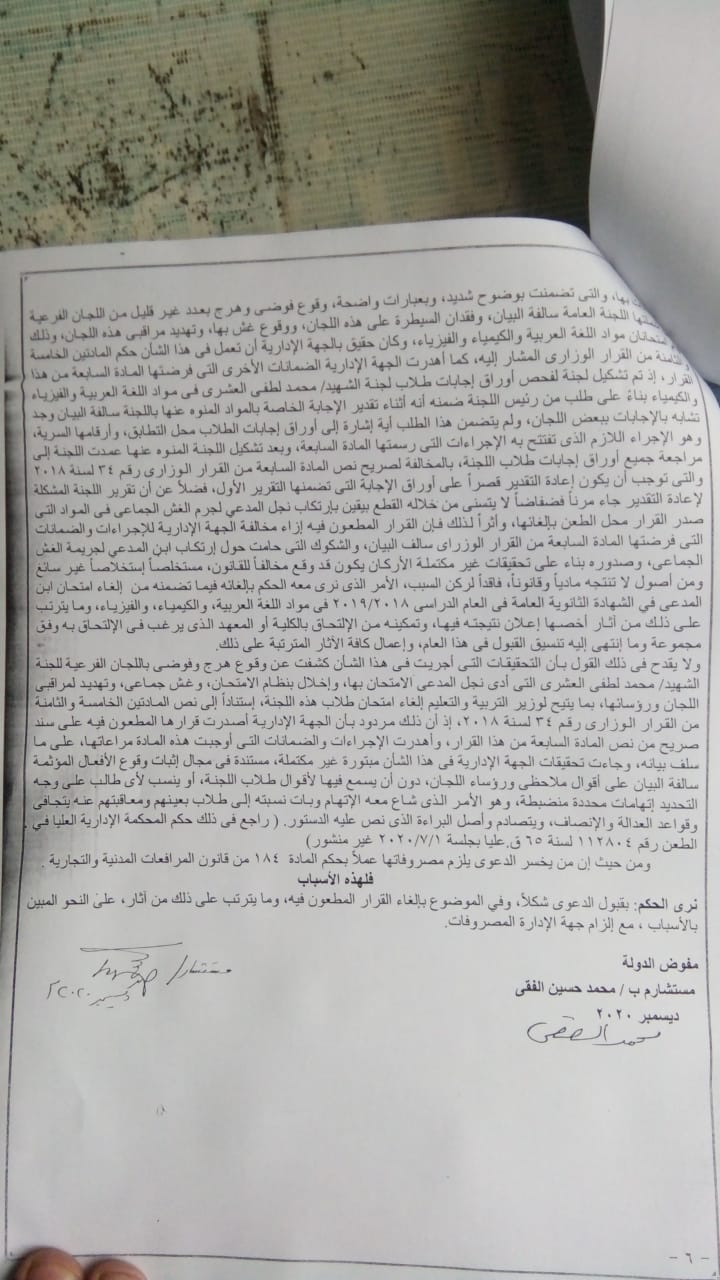 بها، والتى تضمنت بوضوح شديد، وبعبارات واضحة، وقوع فوضى وهرج بعدد غير قليل من اللجان الفرعية
اللجنة العامة سالفة البيان، وفقدان السيطرة على هذه اللجان، ووقوع غش بها، وتهديد مراقبى هذه اللجان، وذلك
امتحانان مواد اللغة العربية والكيمياء و الفيزياء، وكان حقيق بالجهة الإدارية أن تعمل فى هذا الشأن حكم المادتين الخامسة
والثامنة من القرار الوزارى المشار إليه، كما أهدرت الجهة الإدارية الضمانات الأخرى التى فرضتها المادة السابعة من هذا
القرار، إذ تم تشكيل لجنة لفحص أوراق إجابات طلاب لجنة الشهيد/ محمد لطفى العشرى فى مواد اللغة العربية و الفيزياء
والكيمياء بناءً على طلب من رئيس اللجنة ضمنه أنه أثناء تقدير الإجابة الخاصة بالمواد المنوه عنها باللجنة سالفة البيان وجد
تشابه بالإجابات ببعض اللجان، ولم يتضمن هذا الطلب أية إشارة إلى أوراق إجابات الطلاب محل التطابق، وأرقامها السرية،
وهو الإجراء اللازم الذى تفتتح به الإجراءات التى رسمتها المادة السابعة، وبعد تشكيل اللجنة المنوه عنها عمدت اللجنة إلى
مراجعة جميع أوراق إجابات طلاب اللجنة، بالمخالفة لصريح نص المادة السابعة من القرار الوزارى رقم ٣٤ لسنة ٢٠١٨
والتى توجب أن يكون إعادة التقدير قصراً على أوراق الإجابة التى تضمنها التقرير الأول، فضلاً عن أن تقرير اللجنة المشكلة
لإعادة التقدير جاء مرناً فضفاضاً لا يتسنى من خلاله القطع بيقين بإرتكاب نجل المدعي لجرم الغش الجماعى فى المواد التى
صدر القرار محل الطعن بإلغانها، وأثراً لذلك فإن القرار المطعون فيه إزاء مخالفة الجهة الإدارية للإجراءات والضمانات
التى فرضتها المادة السابعة من القرار الوزراى سالف البيان، والشكوك التى حامت حول إرتكاب ابن المدعي لجريمة الغش
الجماعى، وصدوره بناء على تحقيقات غير مكتملة الأركان يكون قد وقع مخالفاً للقانون، مستخلصاً إستخلاصاً غير سائغ
ومن أصول لا تنتجه مادياً وقانوناً، فاقداً لركن السبب، الأمر الذى نرى معه الحكم بإلغائه فيما تضمنه من إلغاء امتحان ابن
المدعى في الشهادة الثانوية العامة فى العام الدراسى ٢٠١٩/٢٠١٨ فى مواد اللغة العربية، والكيمياء، والفيزياء، وما يترتب
على ذلك من أثار أخصها إعلان نتيجته فيها، وتمكينه من الإلتحاق بالكلية أو المعهد الذى يرغب فى الإلتحاق به وفق
مجموعة وما إنتهى إليه تنسيق القبول فى هذا العام، وإعمال كافة الآثار المترتبة على ذلك.
ولا يقدح فى ذلك القول بأن التحقيقات التى أجريت فى هذا الشأن كشفت عن وقوع هرج وفوضى باللجان الفرعية للجنة
الشهيد/ محمد لطفى العشرى التى أدى نجل المدعى الامتحان بها، وإخلال بنظام الامتحان، وغش جماعى، وتهديد لمراقبى
اللجان ورؤسائها، بما يتيح لوزير التربية و التعليم إلغاء امتحان طلاب هذه اللجنة، إستناداً إلى نص المادتين الخامسة والثامنة
من القرار الوزارى رقم ٣٤ لسنة ٢٠١٨، إذ أن ذلك مردود بأن الجهة الإدارية أصدرت قرارها المطعون فيه على سند
صريح من نص المادة السابعة من هذا القرار، وأهدرت الإجراءات والضمانات التى أوجبت هذه المادة مراعاتها، على ما
سلف بيانه، وجاءت تحقيقات الجهة الإدارية فى هذا الشأن مبتورة غير مكتملة، مستندة فى مجال إثبات وقوع الأفعال المؤثمة
سالفة البيان على أقوال ملاحظى ورؤساء اللجان، دون أن يسمع فيها لأقوال طلاب اللجنة، أو ينسب لأى طالب على وجه
التحديد إتهامات محددة منضبطة، وهو الأمر الذى شاع معه الإتهام وبات نسبته إلى طلاب بعينهم ومعاقبتهم عنه يتجافى
وقواعد العدالة والإنصاف، ويتصادم وأصل البراءة الذى نص عليه الدستور. ( راجع فى ذلك حكم المحكمة الإدارية العليا في
الطعن رقم ١١٢٨٠٤ لسنة ٦٥ ق.عليا بجلسة ٢٠٢٠/٧/١ غير منشور)
ومن حيث إن من يخسر الدعوى يلزم مصروفاتها عملاً بحكم المادة ١٨٤ من قانون المرافعات المدنية والتجارية .
فلهذه الأسباب
نرى الحكم: بقبول الدعوى شكلاً، وفي الموضوع بإلغاء القرار المطعون فيه، وما يترتب على ذلك من أثار، على النحو المبين
بالأسباب ، مع إلزام جهة الإدارة المصروفات.
مفوض الدولة
مستشارم ب / محمد حسين الفقى
ديسمبر ٢٠٢٠
محمد الفقى
مستشار/
ديسمبر ٢٠٢٠
- ٦ -